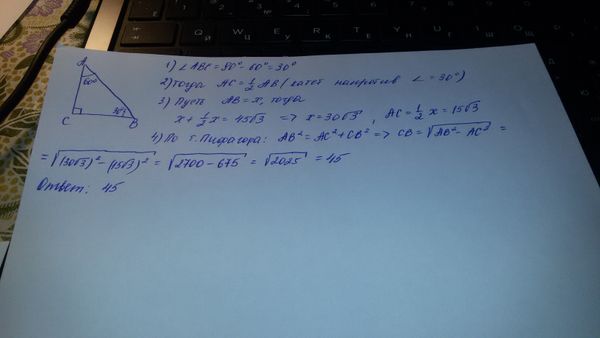 A
60°
30°
C
B
1) ∠ABC = 90° - 60° = 30°
2) Тогда AC = 1/2 AB (катет напротив ∠ = 30°)
3) Пусть AB = x, тогда
x + 1/2 x = 45√3 => x = 30√3, AC = 1/2 x = 15√3
4) По т. Пифагора: AB² = AC² + CB² => CB = √(AB² - AC²) =
= √((30√3)² - (15√3)²) = √(2700 - 675) = √2025 = 45
Ответ: 45